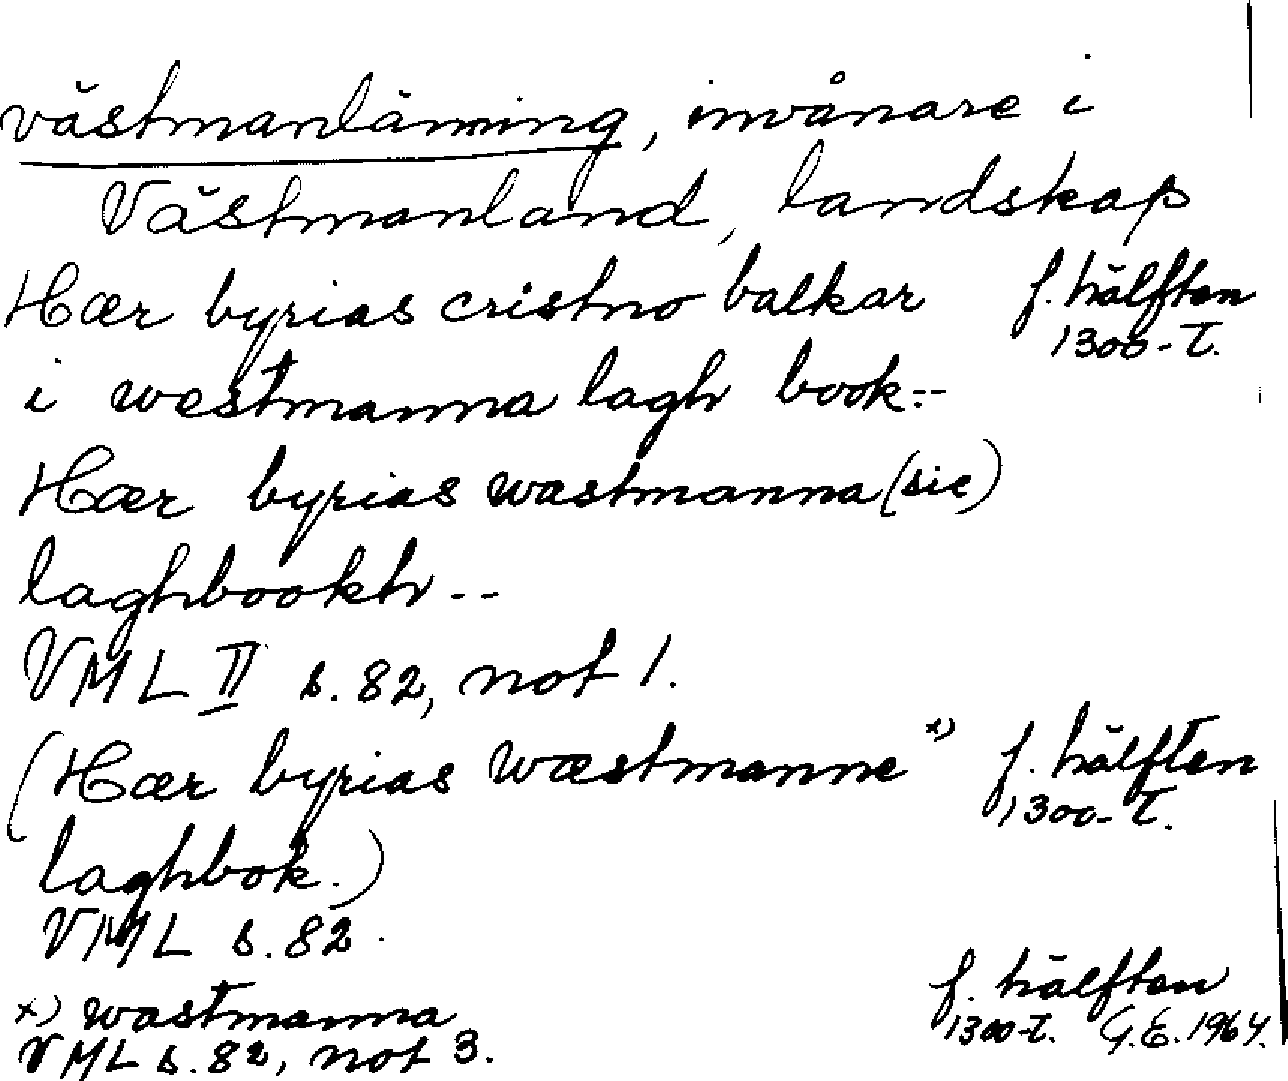 västmanlänning, invånare i
Västmanland, landskap
Hær byrias cristno balkar f. hälften
1300-t.
i westmanna lagh book--
Hær byrias wastmanna (sic)
laghbookh --
VML II s. 82, not 1.
(Hær byrias wæstmanne x) f. hälften
1300-t.
laghbok.)
VML s. 82.
x) wastmanna f. hälften
VML s. 82, not 3. 1300-t. G.E. 1964.